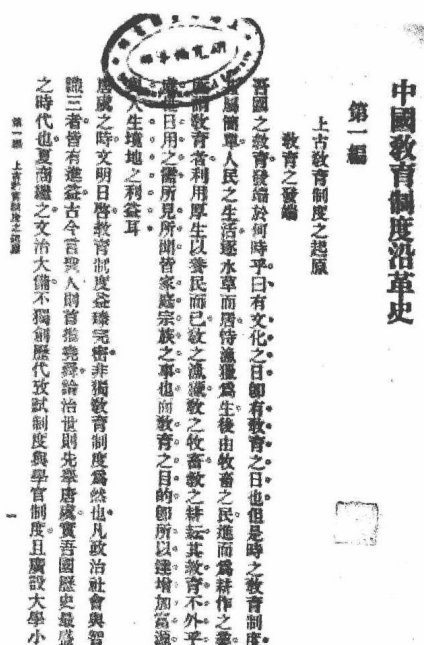 中國教育制度沿革史
第一編
上古教育制度之起原
教育之發端
吾國之教育發端於何時乎曰有文化之日卽有教育之日也但是時之教育制度
屬簡單人民之生活逐水草而居恃漁獵爲生後由牧畜之民進而爲耕作之
謂教育者利用厚生以養民而已教之漁獵教之牧畜教之耕耘其教育不外乎
日用之儒所見所聞皆家庭宗族之事也而教育之目的卽所以達增加富源
人生境地之利益耳
唐虞之時文明日啓教育制度益臻完密非獨教育制度爲然也凡政治社會與智
識三者皆有進益古今言聖人則首推堯舜論治世則先舉唐虞實吾國歷史最盛
之時代也夏商繼之文治大備不獨創歷代攷試制度與學官制度且廣設大學小
第一編 上古教育制度之起原
一